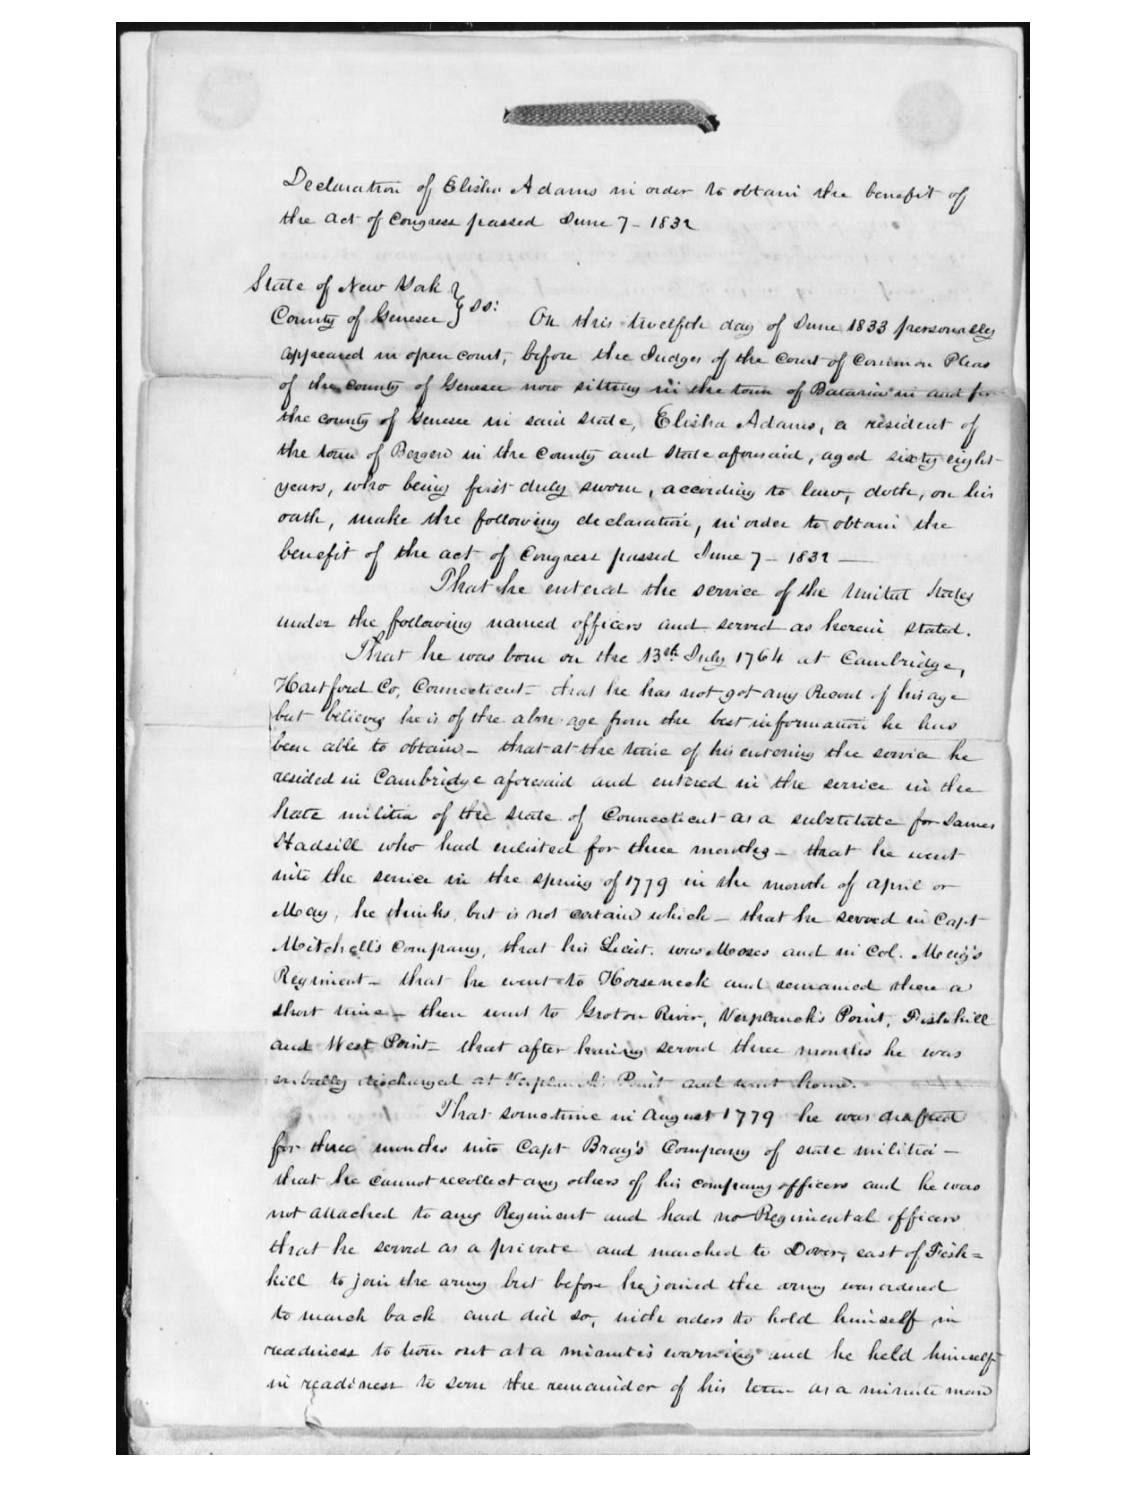 Declaration of Elisha Adams in order to obtain the benefit of
the act of Congress passed June 7 - 1832
State of New York }
County of Genesee } SS: On this twelfth day of June 1833 personally
appeared in open court, before the Judges of the Court of Common Pleas
of the county of Genesee now sitting in the town of Batavia in and for
the county of Genesee in said state, Elisha Adams, a resident of
the town of Bergen in the County and State aforesaid, aged sixty eight
years, who being first duly sworn, according to law, doth, on his
oath, make the following declaration, in order to obtain the
benefit of the act of Congress passed June 7 - 1832 —
That he entered the service of the United States
under the following named officers and served as herein stated.
That he was born on the 13th July 1764 at Cambridge,
Hartford Co, Connecticut - that he has not got any Record of his age
but believes he is of the above age from the best information he has
been able to obtain - that at the time of his entering the service he
resided in Cambridge aforesaid and entered in the service in the
State militia of the state of Connecticut as a substitute for James
Hadsill who had enlisted for three months - that he went
into the service in the spring of 1779 in the month of april or
May, he thinks, but is not certain which - that he served in Capt
Mitchell's Company, that his Lieut. was Moses and in Col. Meig's
Regiment - that he went to Horseneck and remained there a
short time - then went to Groton River, Verplanck's Point, Fishkill
and West Point - that after having served three months he was
verbally discharged at Verplanck's Point and went home.
That sometime in August 1779 he was drafted
for three months into Capt Bray's Company of state militia -
that he cannot recollect any others of his company officers and he was
not attached to any Regiment and had no Regimental officers
that he served as a private and marched to Dover, east of Fish=
kill to join the army but before he joined the army was ordered
to march back and did so, with orders to hold himself in
readiness to turn out at a minute's warning and he held himself
in readiness to serve the remainder of his term as a minute man